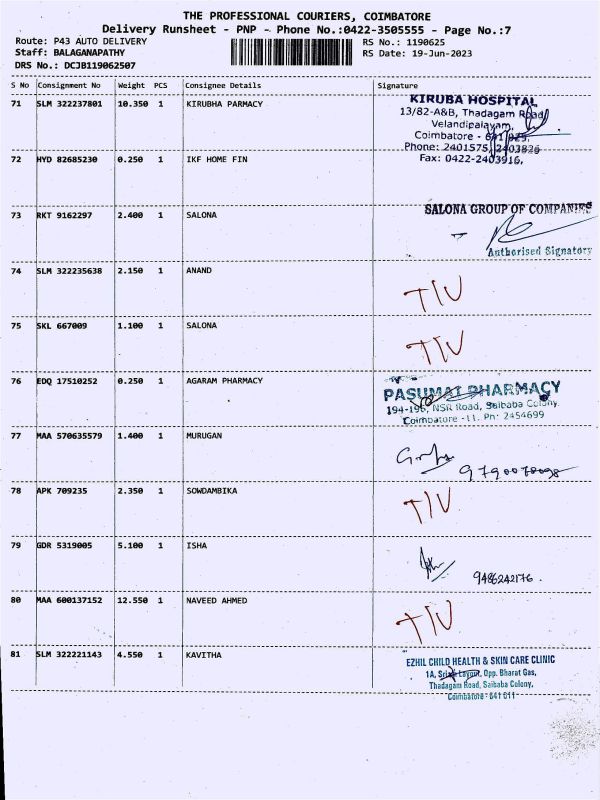 THE PROFESSIONAL COURIERS, COIMBATORE
Delivery Runsheet - PNP - Phone No.:0422-3505555 - Page No.:7
Route: P43 AUTO DELIVERY RS No.: 1190625
Staff: BALAGANAPATHY RS Date: 19-Jun-2023
DRS No.: DCJB119062507
S No Consignment No Weight PCS Consignee Details Signature
71 SLM 322237801 10.350 1 KIRUBHA PARMACY
KIRUBA HOSPITAL
13/82-A&B, Thadagam Road
Velandipalayam,
Coimbatore - 641 025.
Phone: 2401575, 2403826
Fax: 0422-2403916,
72 HYD 82685230 0.250 1 IKF HOME FIN
73 RKT 9162297 2.400 1 SALONA
SALONA GROUP OF COMPANIES
Authorised Signatory
74 SLM 322235638 2.150 1 ANAND
T/U
75 SKL 667009 1.100 1 SALONA
T/U
76 EDQ 17510252 0.250 1 AGARAM PHARMACY
PASUMAI PHARMACY
194-196, NSR Road, Saibaba Colony
Coimbatore -11. Ph: 2454699
77 MAA 570635579 1.400 1 MURUGAN
9790070098
78 APK 709235 2.350 1 SOWDAMBIKA
T/U
79 GDR 5319005 5.100 1 ISHA
9486242176.
80 MAA 600137152 12.550 1 NAVEED AHMED
T/U
81 SLM 322221143 4.550 1 KAVITHA
EZHIL CHILD HEALTH & SKIN CARE CLINIC
1A, Layout, Opp. Bharat Gas,
Thadagam Road, Saibaba Colony,
Coimbatore - 641 011